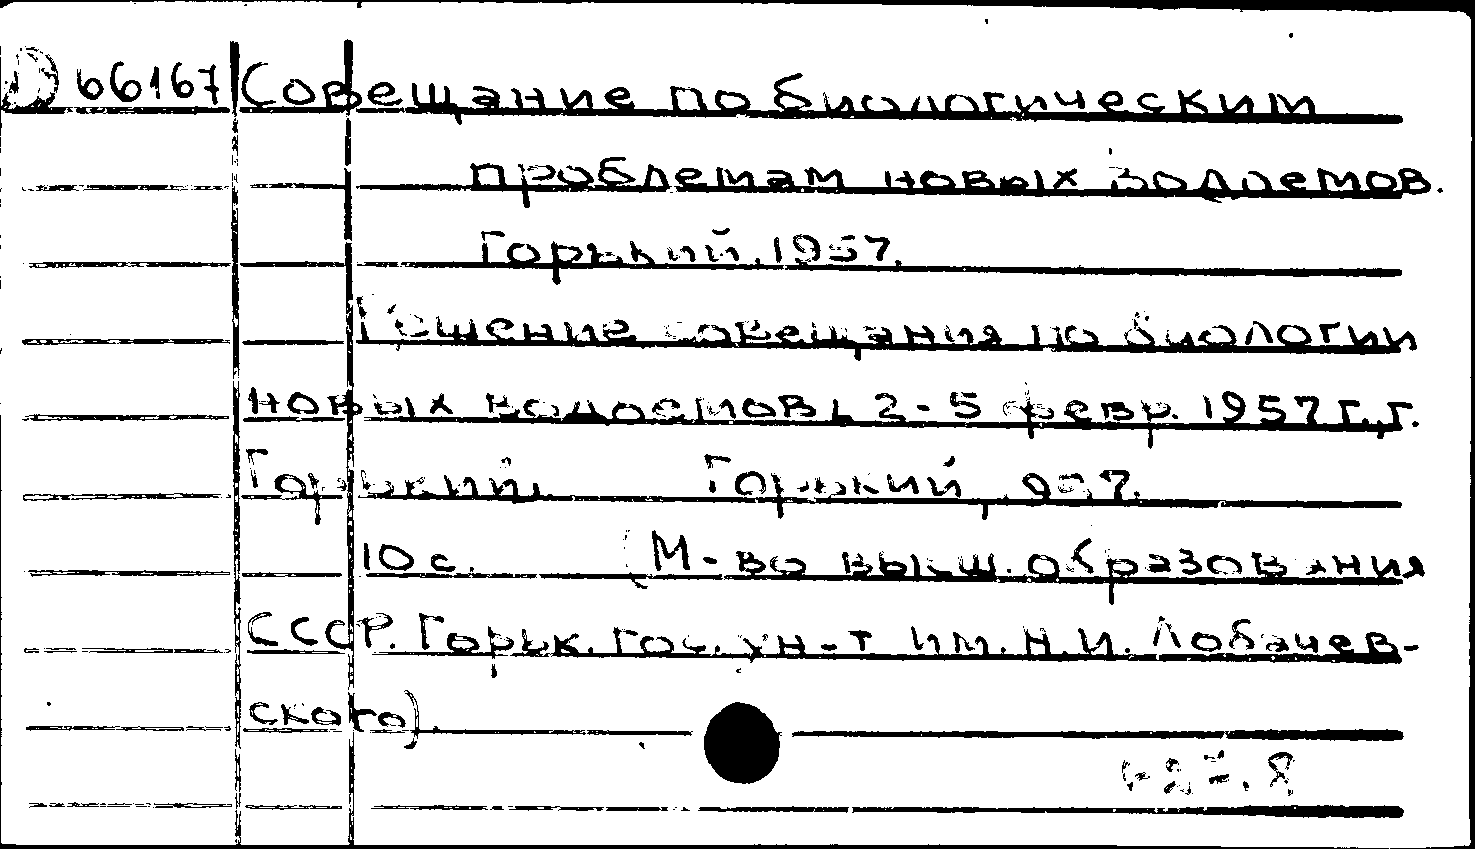 66167 Совещание по биологическим
проблемам новых водоемов.
Горький. 1957.
Решение совещания по биологии
новых водоемов, 2-5 февр. 1957 г., г.
Горький. Горький, 957.
10 с. (М-во высш. образования
СССР. Горьк. гос. ун-т им. Н.И. Лобачев-
ского).